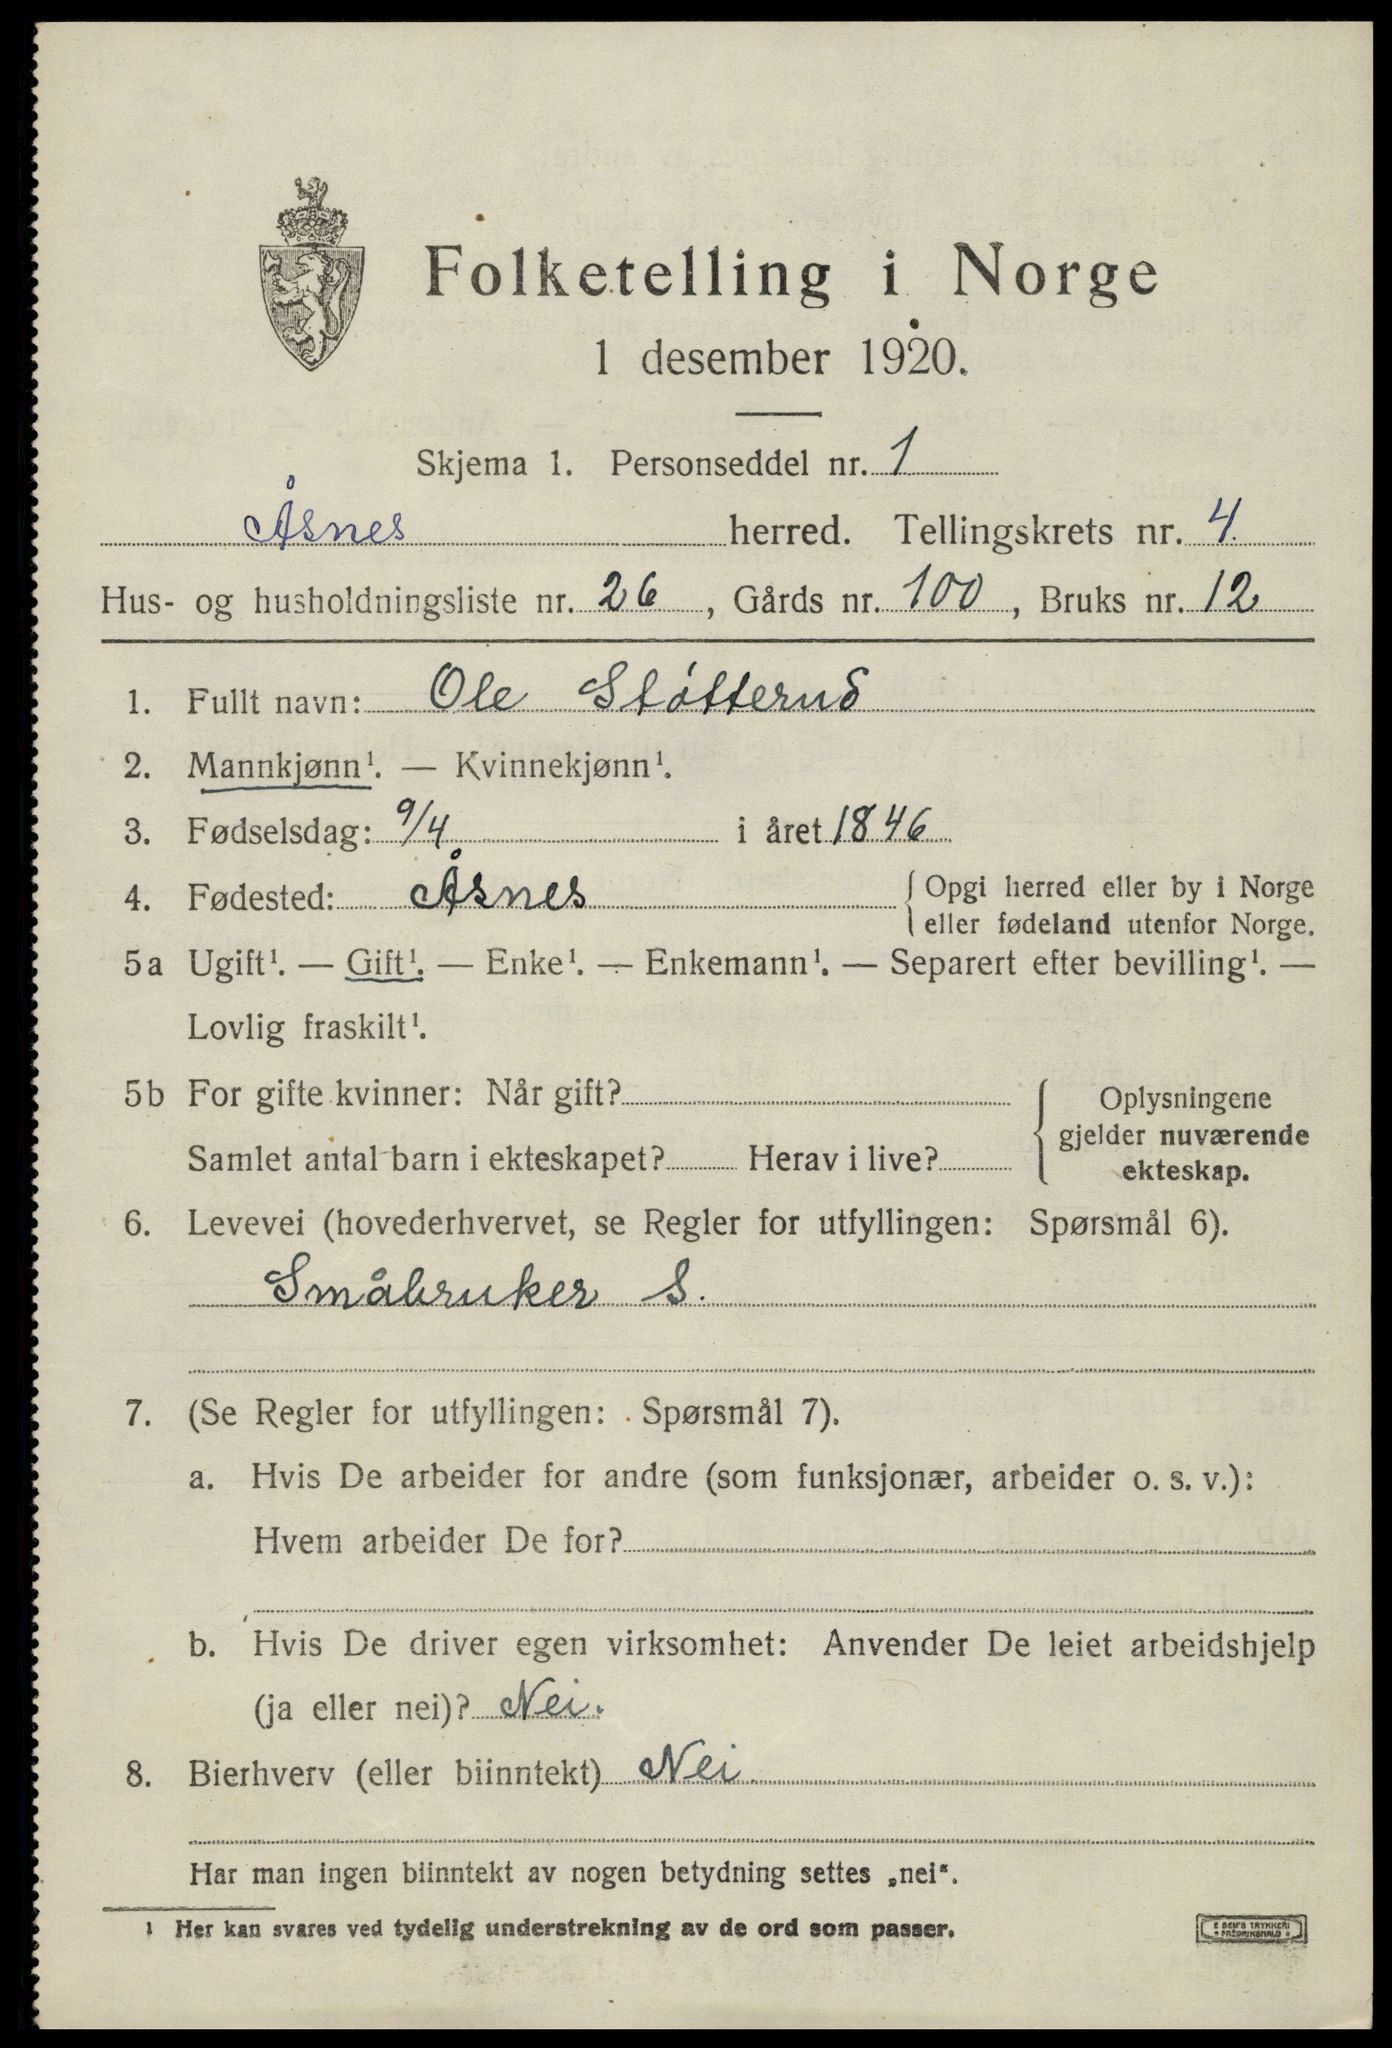 Folketelling i Norge
1 desember 1920.
Skjema 1. Personseddel nr. 1
Åsnes herred. Tellingskrets nr. 4.
Hus- og husholdningsliste nr. 26, Gårds nr. 100, Bruks nr. 12
1. Fullt navn: Ole Støtterud
2. Mannkjønn¹. — Kvinnekjønn¹.
3. Fødselsdag: 9/4 i året 1846
4. Fødested: Åsnes { Opgi herred eller by i Norge
eller fødeland utenfor Norge.
5a Ugift¹. — Gift¹. — Enke¹. — Enkemann¹. — Separert efter bevilling¹. —
Lovlig fraskilt¹.
5b For gifte kvinner: Når gift? { Oplysningene
gjelder nuværende
Samlet antal barn i ekteskapet? Herav i live?
ekteskap.
6. Levevei (hovederhvervet, se Regler for utfyllingen: Spørsmål 6).
Småbruker S.
7. (Se Regler for utfyllingen: Spørsmål 7).
a. Hvis De arbeider for andre (som funksjonær, arbeider o. s. v.):
Hvem arbeider De for?
b. Hvis De driver egen virksomhet: Anvender De leiet arbeidshjelp
(ja eller nei)? Nei.
8. Bierhverv (eller biinntekt) Nei
Har man ingen biinntekt av nogen betydning settes „nei“.
1 Her kan svares ved tydelig understrekning av de ord som passer.
E SEM'S TRYKKERI
FREDRIKSHALD